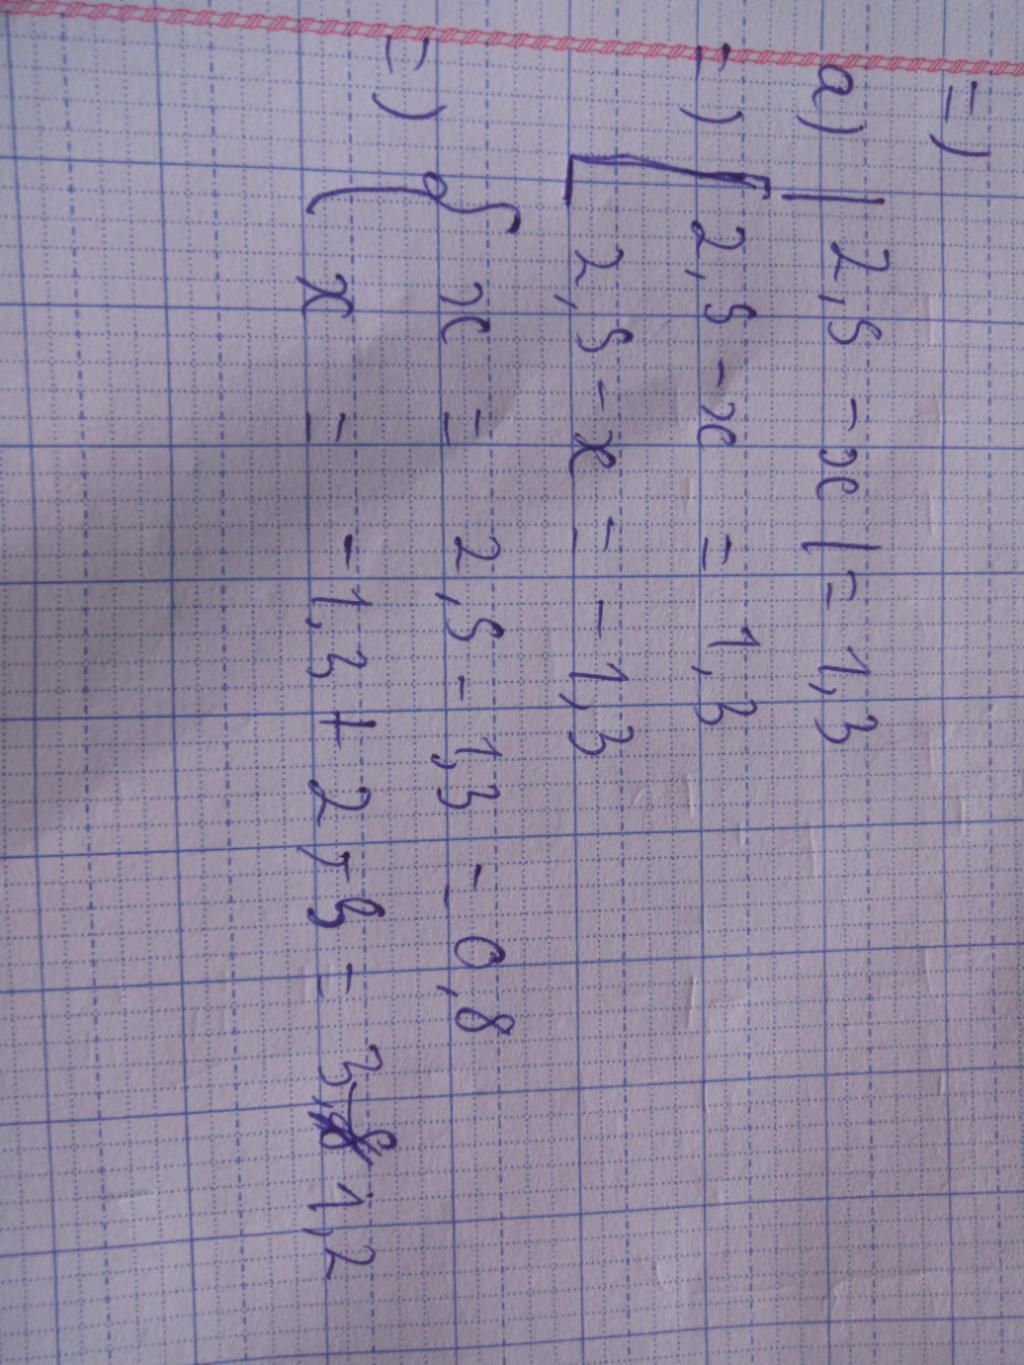 =)
a) |2,5 - x| = 1,3
=) [ 2,5 - x = 1,3
2,5 - x = - 1,3
=) { x = 2,5 - 1,3 = 0,8
x = - 1,3 + 2,5 = 1,2